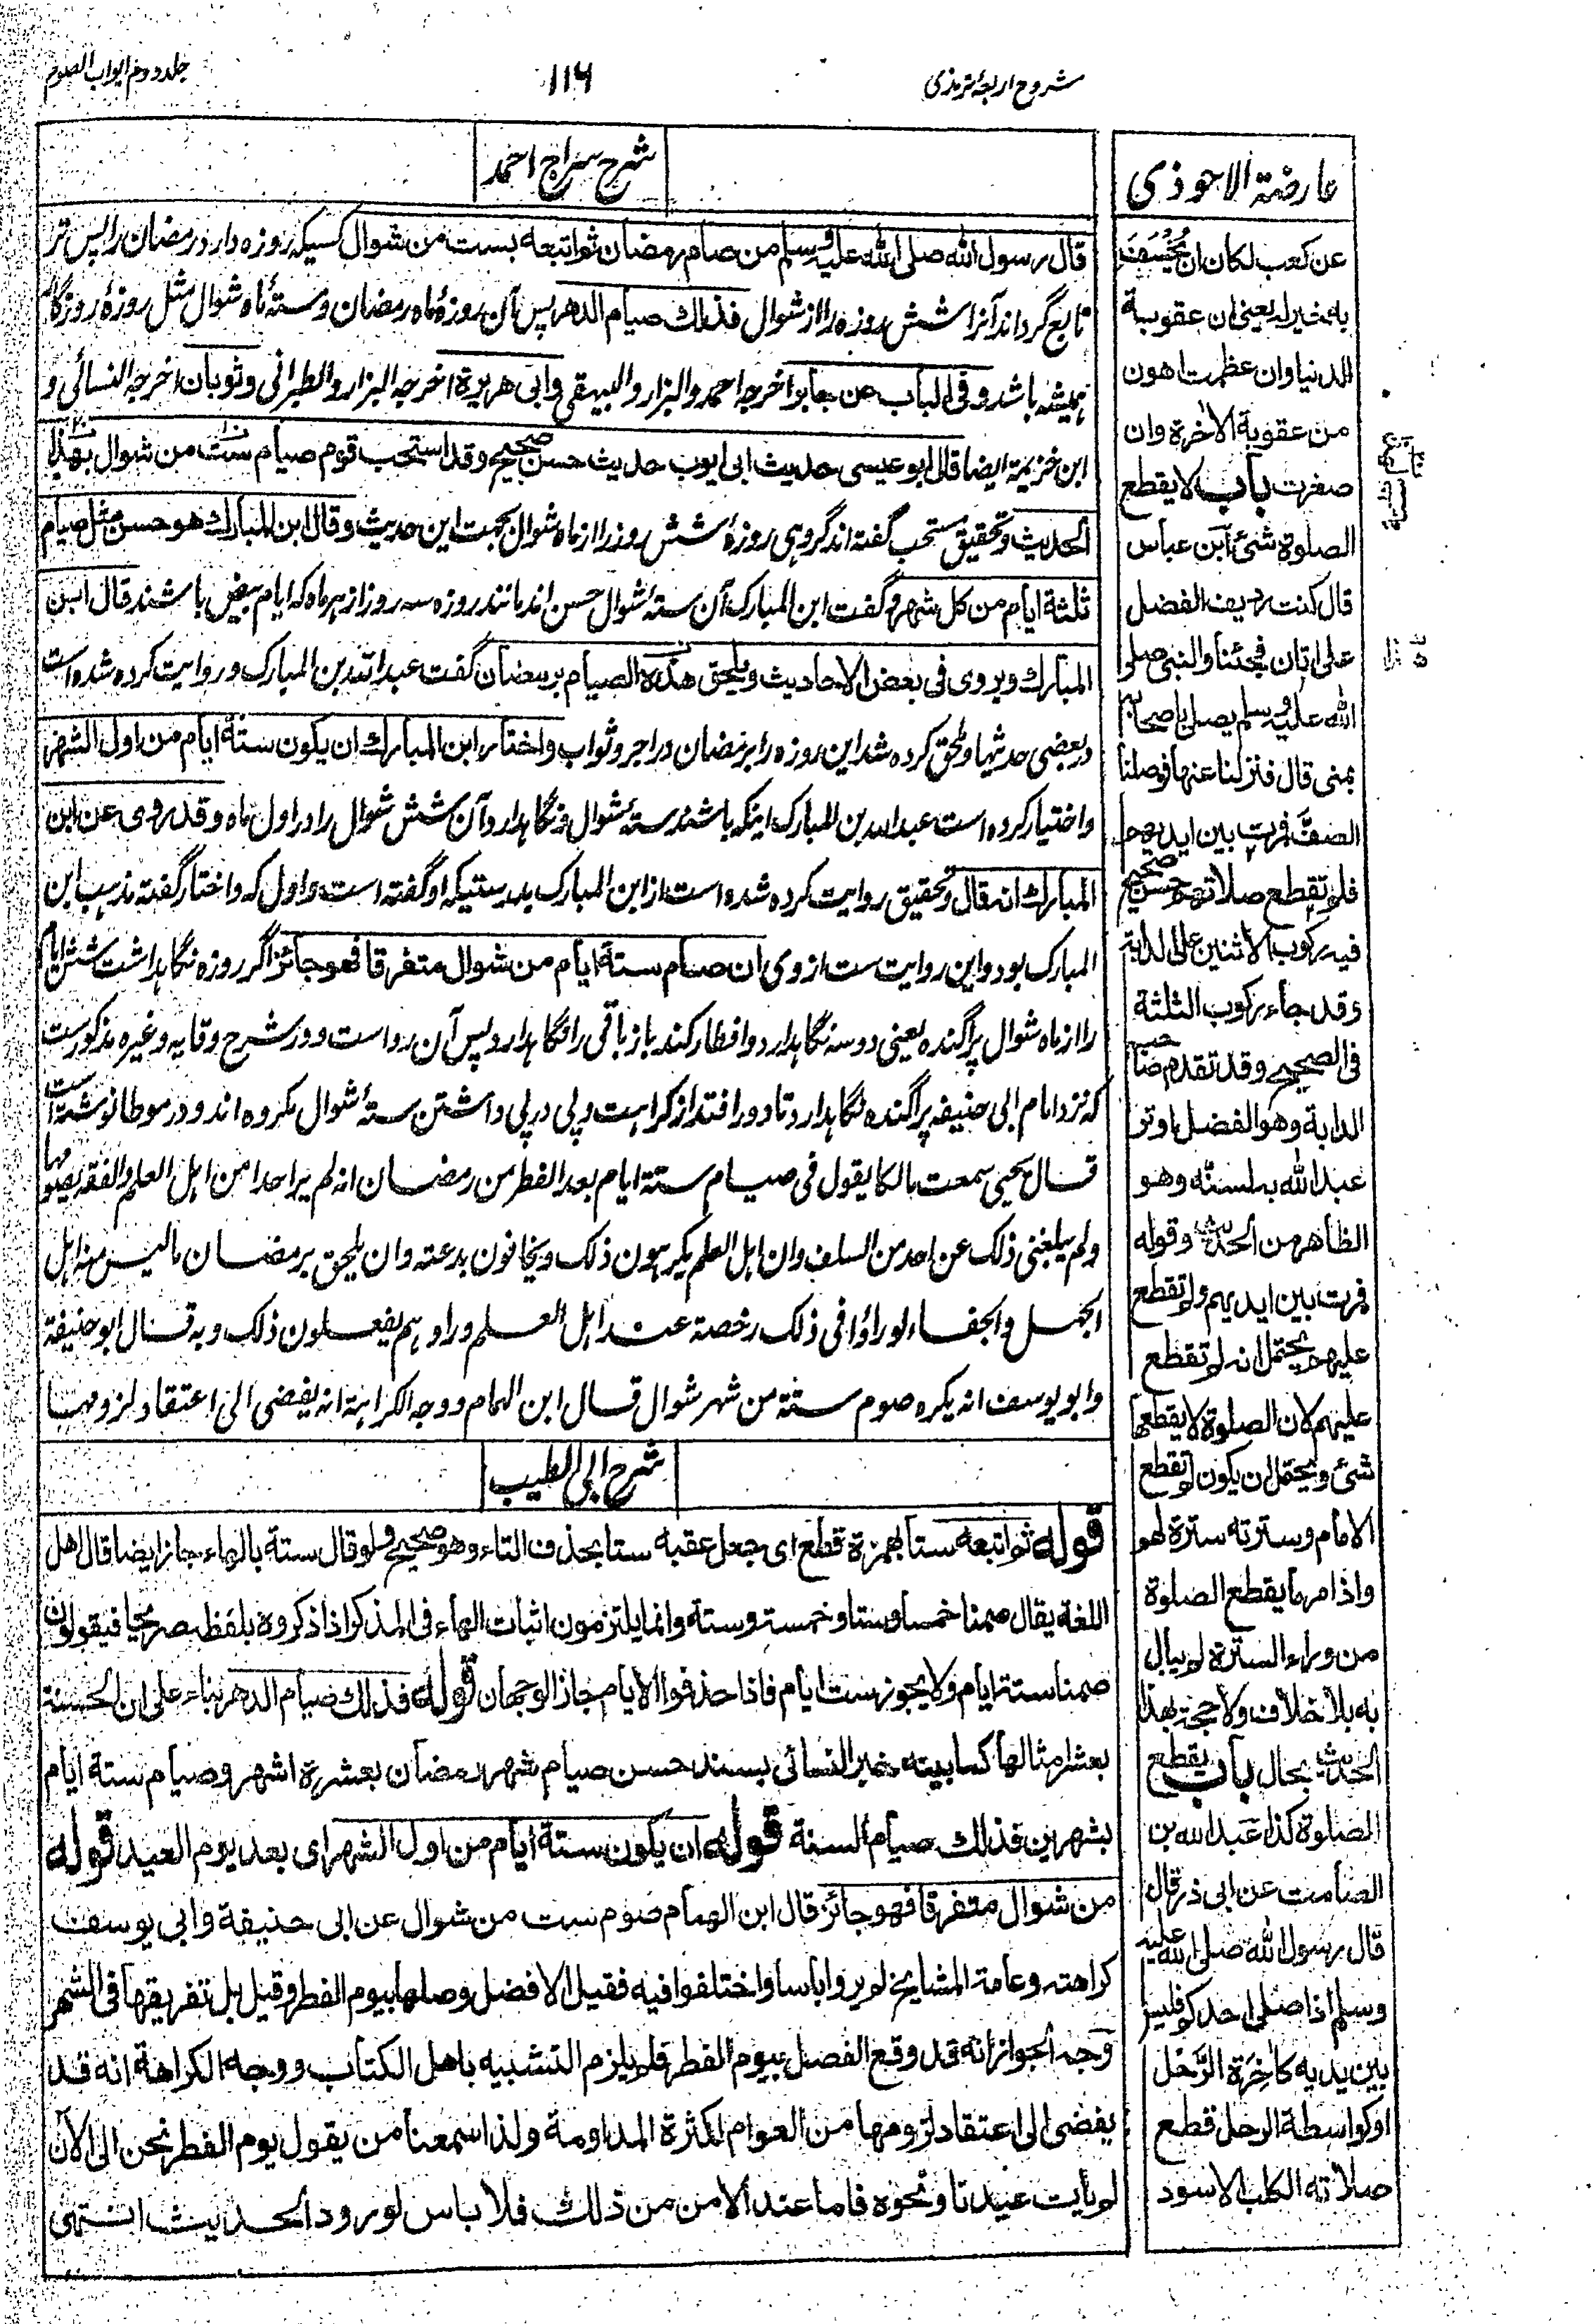 شروح اربعۂ ترمذی
۱۱۶
جلد دوم ابواب الصوم
عارضة الاحوذی
عن كعب لكان ان يخسف
به خير له يعنی ان عقوبة
الدنيا وان عظمت اهون
من عقوبة الآخرة وان
صغرت باب لا يقطع
الصلوة شئ ابن عباس
قال كنت رديف الفضل
على اتان فجئنا والنبی صلى
الله عليه وسلم يصلی باصحابه
بمنى قال فنزلنا عنها فوصلنا
الصف فمرت بين ايديهم
فلم تقطع صلاتهم حسن صحيح
فيه ركوب الاثنين على الدابة
وقد جاء ركوب الثلثة
فی الصحيح وقد تقدم صاحب
الدابة وهو الفضل
عبد الله بلسنه وهو
الظاهر من الحديث وقوله
فمرت بين ايديهم ولم تقطع
عليهم يحتمل انه لم تقطع
عليهم لان الصلوة لا يقطعها
شئ ويحتمل ان يكون لم تقطع
الامام وسترته سترة لهم
واذا مر ما يقطع الصلوة
من وراء السترة لم يبال
به بلا خلاف ولا حجة بهذا
الحديث بحال باب يقطع
الصلوة كذا عبد الله بن
الصامت عن ابی ذر قال
قال رسول الله صلى الله عليه
وسلم اذا صلى احدكم وليس
بين يديه كآخرة الرحل
او كواسطة الرحل قطع
صلاته الكلب الاسود
شرح سراج احمد
قال رسول الله صلى الله عليه وسلم من صام رمضان ثم اتبعه بست من شوال كسيكه روزه دارد رمضان را پس تر
تابع گرداند آنرا شش روزه را از شوال فذلك صيام الدهر پس آن روزهٔ ماه رمضان و ستهٔ ماه شوال مثل روزهٔ روزگار
هميشه باشد وفی الباب عن جابر اخرجه احمد والبزار والبيهقی وابی هريرة اخرجه البزار والطبرانی وثوبان اخرجه النسائی و
ابن خزيمة ايضا قال ابو عيسى حديث ابی ايوب حديث حسن صحيح وقد استحب قوم صيام ستة من شوال بهذا
الحديث وتحقيق مستحب گفته اند گروهی روزهٔ شش روز را از ماه شوال بجهت اين حديث وقال ابن المبارك هو حسن مثل صيام
ثلثة ايام من كل شهر و گفت ابن المبارك آن ستهٔ شوال حسن اند مانند روزه سه روز از هر ماه كه ايام بيض باشند قال ابن
المبارك ويروی فی بعض الاحاديث ويلحق هذه الصيام برمضان گفت عبد الله بن المبارك و روايت كرده شده است
در بعضی حديثها و ملحق كرده شد اين روزه را برمضان در اجر و ثواب واختار ابن المبارك ان يكون ستة ايام من اول الشهر
واختيار كرده است عبد الله بن المبارك اينكه باشند ستهٔ شوال و نگاهدارد آن شش شوال را در اول ماه وقد روی عن ابن
المبارك انه قال وتحقيق روايت كرده شده است از ابن المبارك بدرستيكه او گفته است و اول كه واختار گفته مذهب ابن
المبارك بود و اين روايت ست از وی ان صام ستة ايام من شوال متفرقا فهو جائز اگر روزه نگاهداشت شش ايام
را از ماه شوال پراگنده يعنی دو سه نگاهدارد و افطار كند باز باقی را نگاهدارد پس آن رواست و در شرح وقايه وغيره مذكورست
كه نزد امام ابی حنيفه پراگنده نگاهدارد تا دور افتد از كراهت و پی در پی داشتن ستهٔ شوال مكروه اند و در موطا نوشته است
قال يحيی سمعت مالكا يقول فی صيام ستة ايام بعد الفطر من رمضان انه لم ير احدا من اهل العلم والفقه يصومها
ولم يبلغنی ذلك عن احد من السلف وان اهل العلم يكرهون ذلك ويخافون بدعته وان يلحق برمضان ما ليس منه اهل
الجهل والجفاء لو راوا فی ذلك رخصة عند اهل العلم وراوهم يفعلون ذلك وبه قال ابو حنيفة
وابو يوسف انه يكره صوم ستة من شهر شوال قال ابن الهمام ووجه الكراهة انه يفضی الى اعتقاد لزومها
شرح ابی الطيب
قوله ثم اتبعه ستا بهمزة قطع ای جعل عقبه ستا بحذف التاء وهو صحيح ولو قال ستة بالهاء جاز ايضا قال اهل
اللغة يقال صمنا خمسا وستا وخمسة وستة وانما يلتزمون اثبات الهاء فی المذكر اذا ذكروه بلفظه صريحا فيقولون
صمنا ستة ايام ولا يجوز ست ايام فاذا حذفوا الايام جاز الوجهان قوله فذلك صيام الدهر بناء على ان الحسنة
بعشر امثالها كما بينه خبر النسائی بسند حسن صيام شهر رمضان بعشرة اشهر وصيام ستة ايام
بشهرين فذلك صيام السنة قوله ان يكون ستة ايام من اول الشهر ای بعد يوم العيد قوله
من شوال متفرقا فهو جائز قال ابن الهمام صوم ست من شوال عن ابی حنيفة وابی يوسف
كراهته وعامة المشايخ لم يروا باسا واختلفوا فيه فقيل الافضل وصلها بيوم الفطر وقيل بل تفريقها فی الشهر
وجه الجواز انه قد وقع الفصل بيوم الفطر فلم يلزم التشبيه باهل الكتاب ووجه الكراهة انه قد
يفضی الى اعتقاد لزومها من العوام لكثرة المداومة ولذا سمعنا من يقول يوم الفطر نحن الى الآن
لم يأت عيدنا ونحوه فاما عند الامن من ذلك فلا باس لورود الحديث انتهى